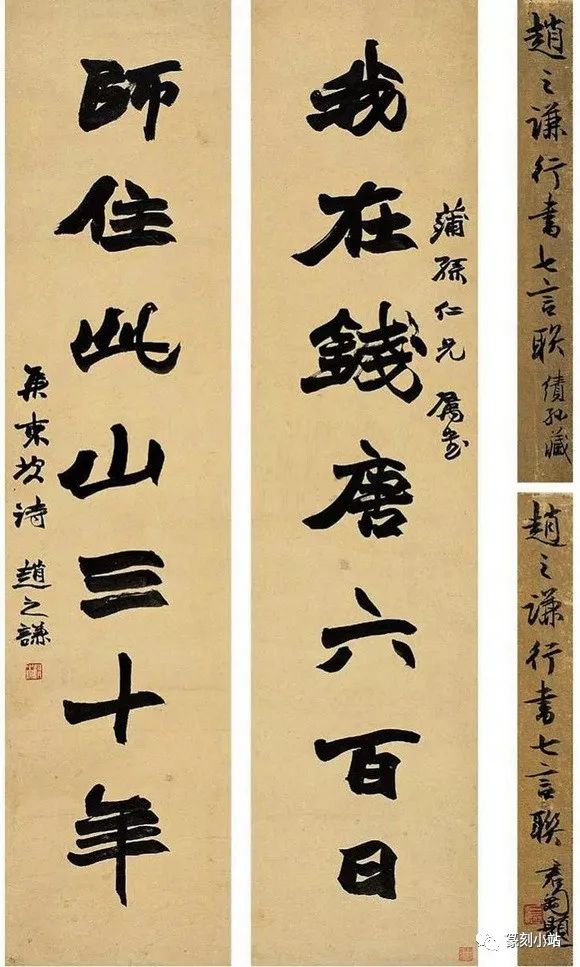 趙之謙行書七言联 績孙藏
趙之謙行書七言聯 君匋題
蒲孫仁兄属書
我在錢唐六百日
師住此山三十年
集東坡詩 趙之謙
篆刻小站